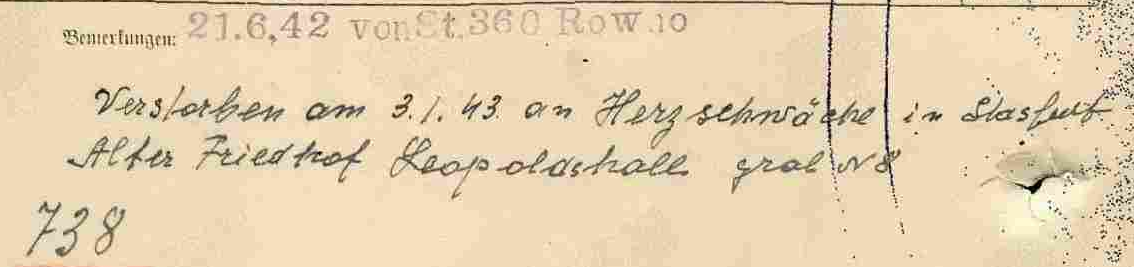 Bemerkungen: 21.6.42 von St. 360 Rowno
Verstorben am 3.1.43 an Herzschwäche in Stasfurt
Alter Friedhof Leopoldshall grab N 8
738